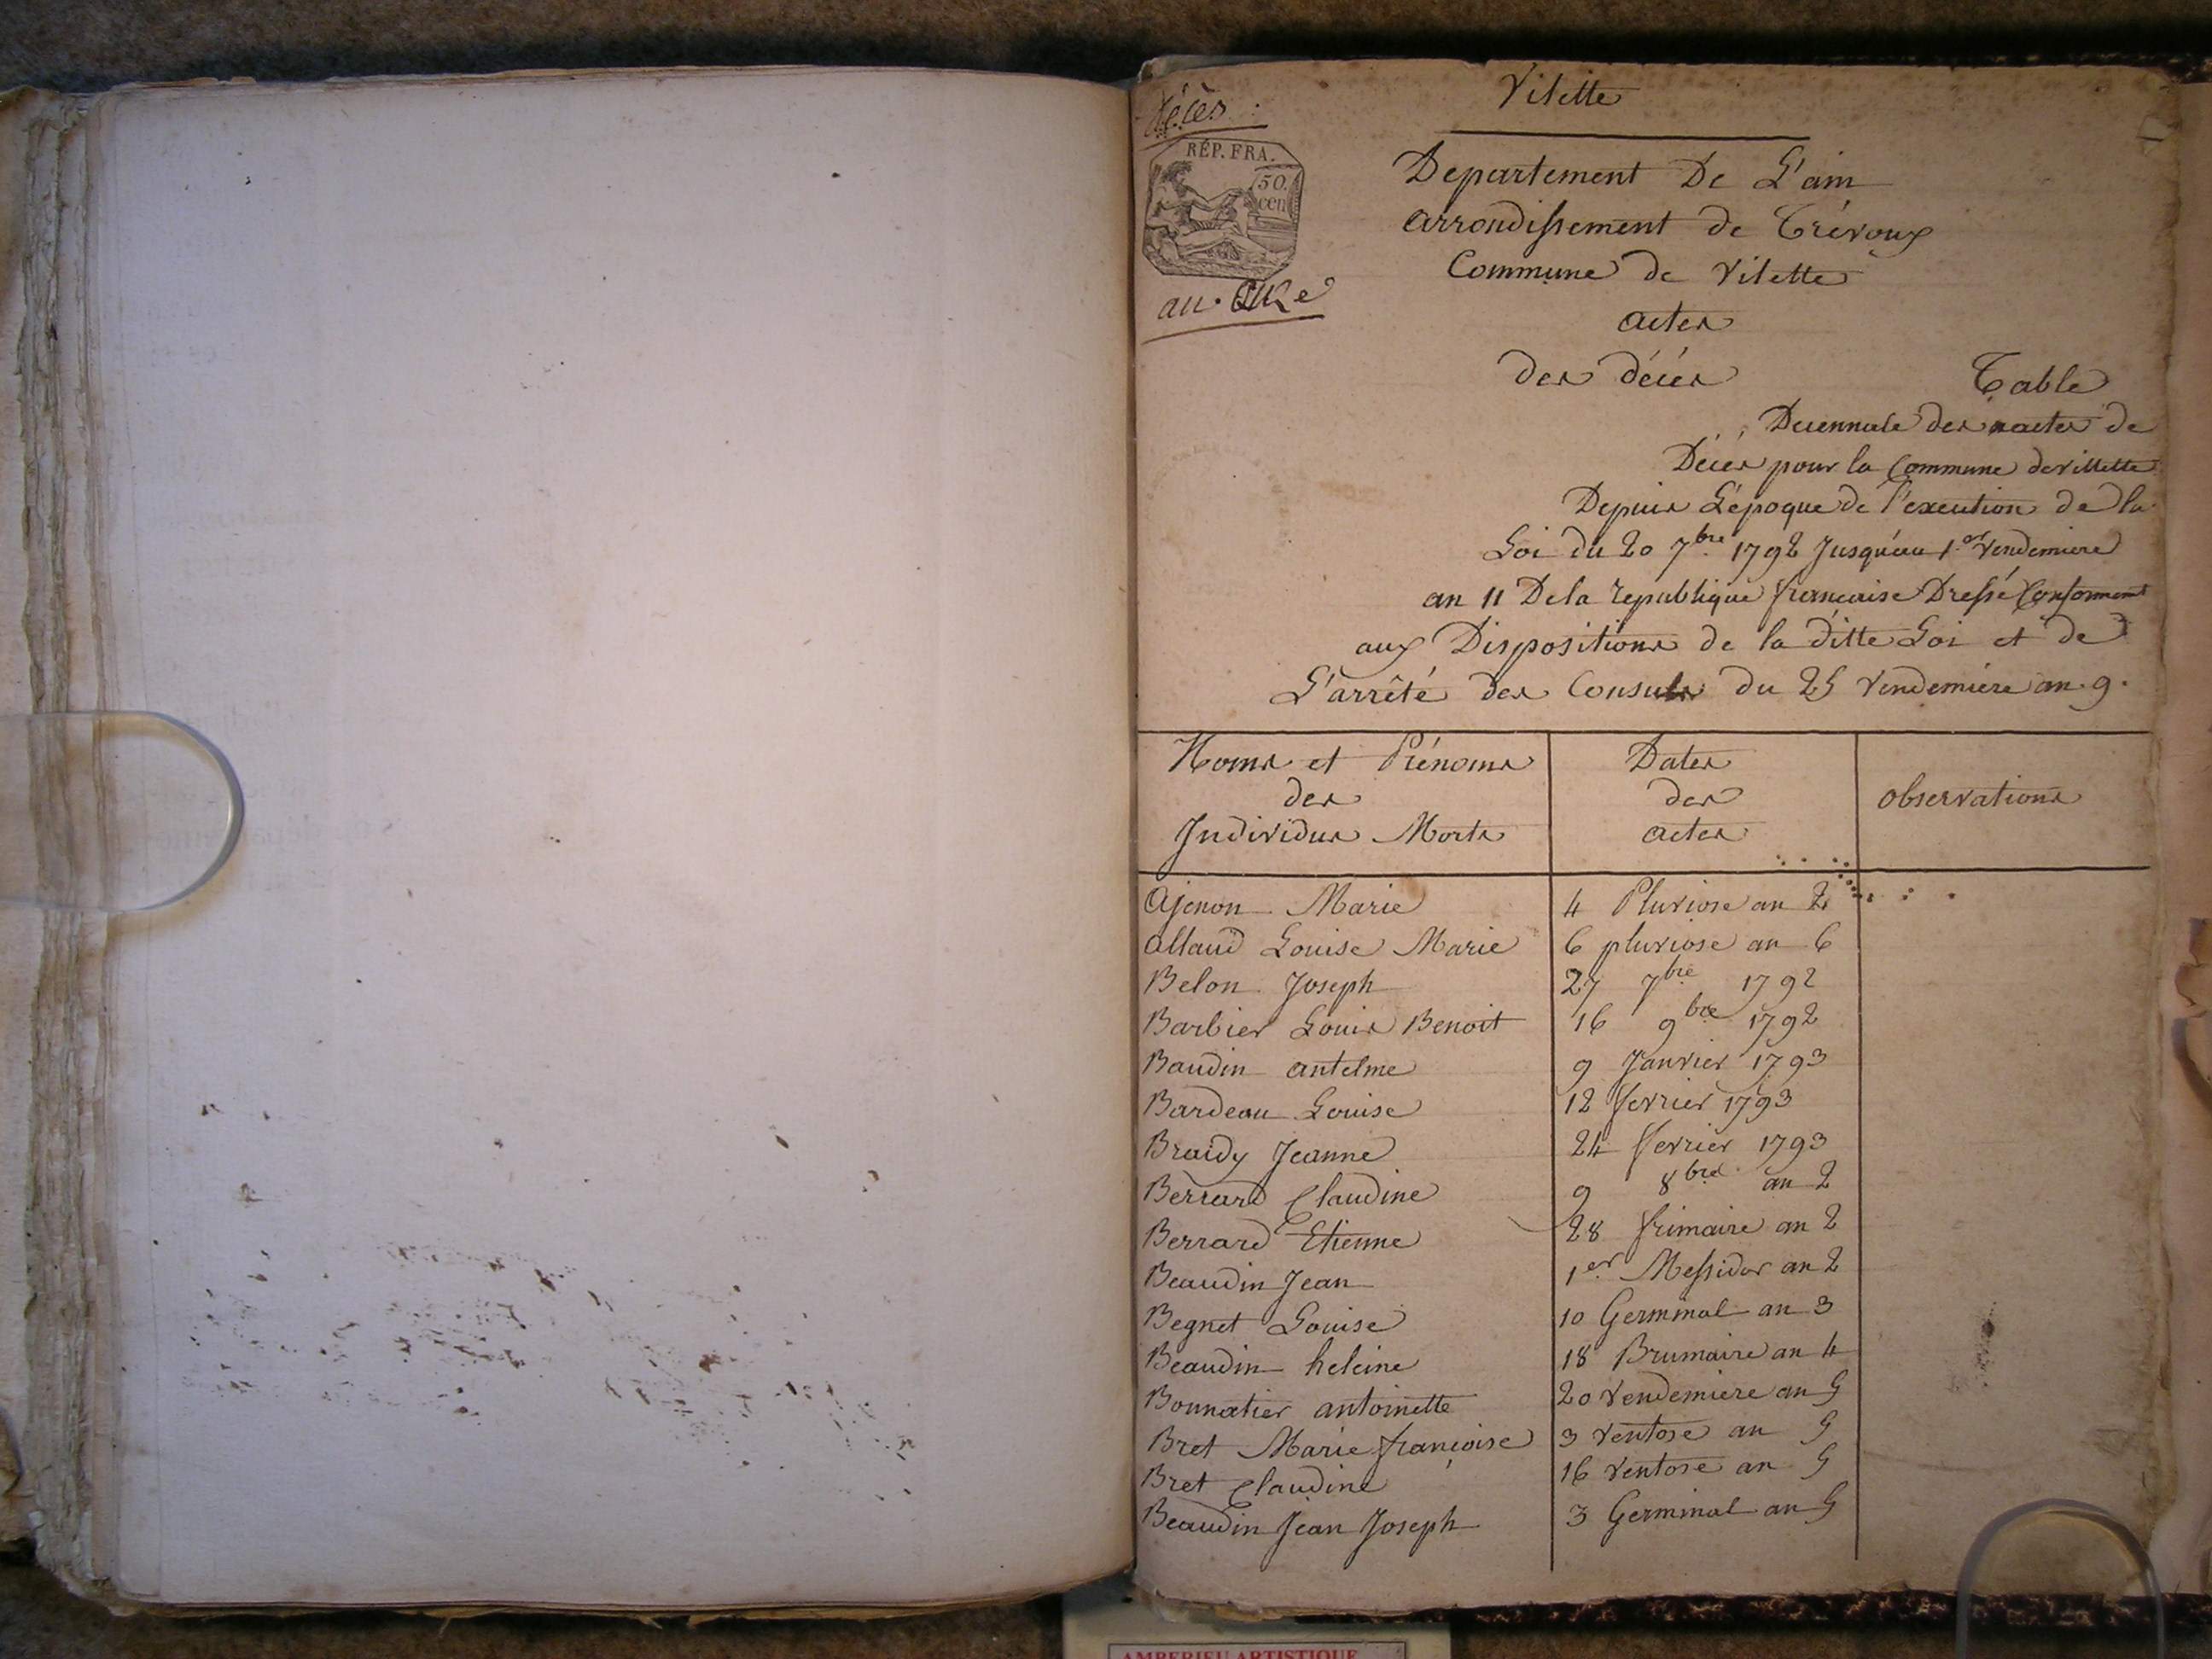 Vilette
décès
RÉP. FRA.
50.
cen
an. onze
Departement De L'ain
arrondissement de Trévoux
Commune de Vilette
actes
des décés
Table
Decennale des actes de
Décés pour la Commune de villette
Depuis L'époque de l'execution de la
Loi du 20 7bre 1792 Jusqu'au 1.er Vendemiere
an 11 De la republique francaise Dressé Conformemt
aux Dispositions de la ditte Loi et de
L'arrêté des Consuls du 25 Vendemiére an 9.
Noms et Prénoms
des
Individus Morts
Dates
des
actes
observations
Ajenon Marie 4 Pluviose an 2
Allaud Louise Marie 6 pluviose an 6
Belon Joseph 27 7bre 1792
Barbier Louis Benoit 16 9bre 1792
Baudin antelme 9 Janvier 1793
Bardeau Louise 12 fevrier 1793
Braidy Jeanne 24 fevrier 1793
Berrard Claudine 9 8bre an 2
Berrard Etienne 28 frimaire an 2
Beaudin Jean 1er Messidor an 2
Begnet Louise 10 Germinal an 3
Beaudin heleine 18 Brumaire an 4
Bonnatier antoinette 20 Vendemiere an 5
Bret Marie françoise 3 Ventose an 5
Bret Claudine 16 Ventose an 5
Beaudin Jean Joseph 3 Germinal an 5
AMBERIEU ARTISTIQUE